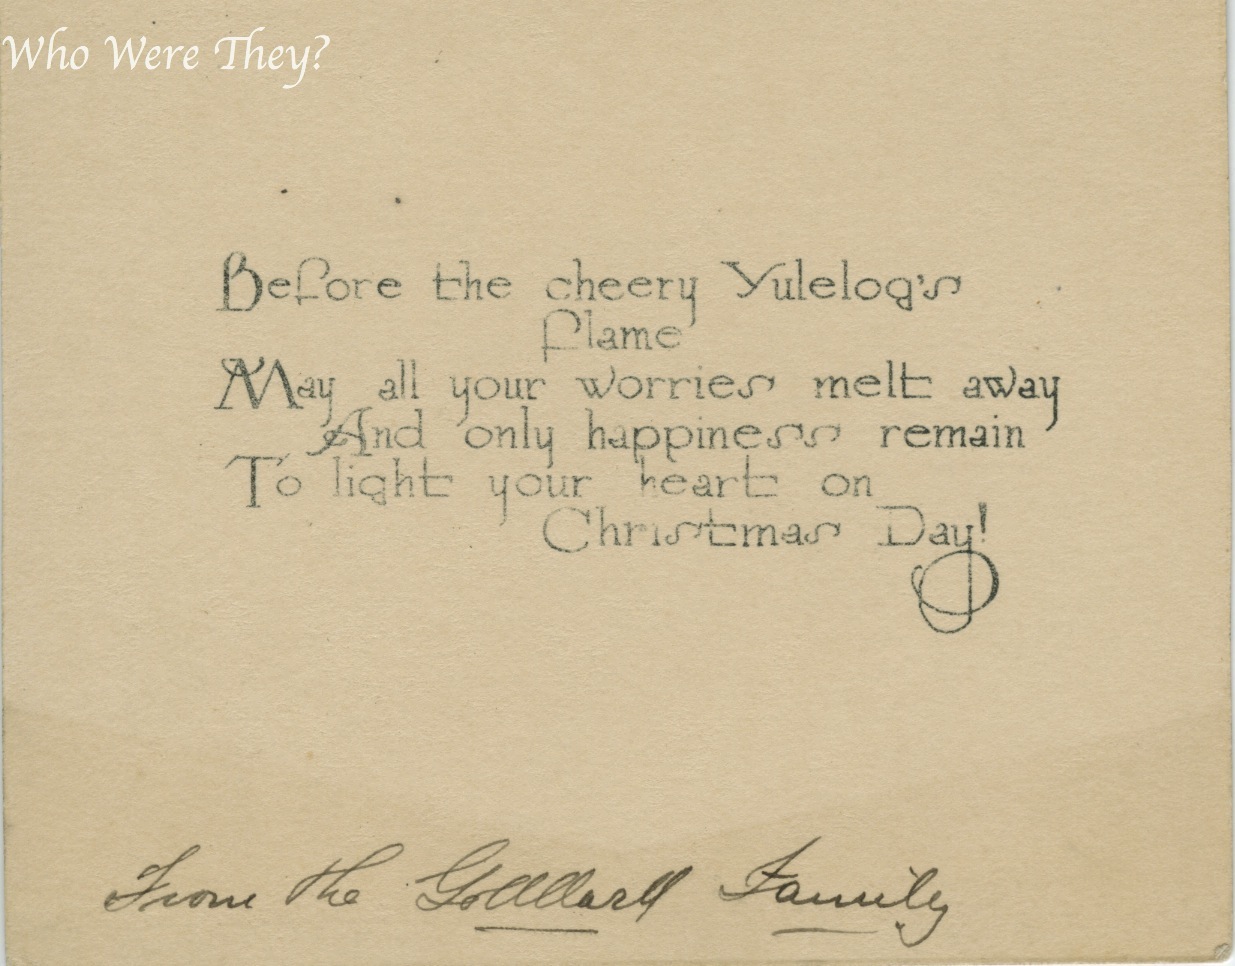 Who Were They?
Before the cheery Yulelog's
flame
May all your worries melt away
And only happiness remain
To light your heart on
Christmas Day!
From the Goddard Family